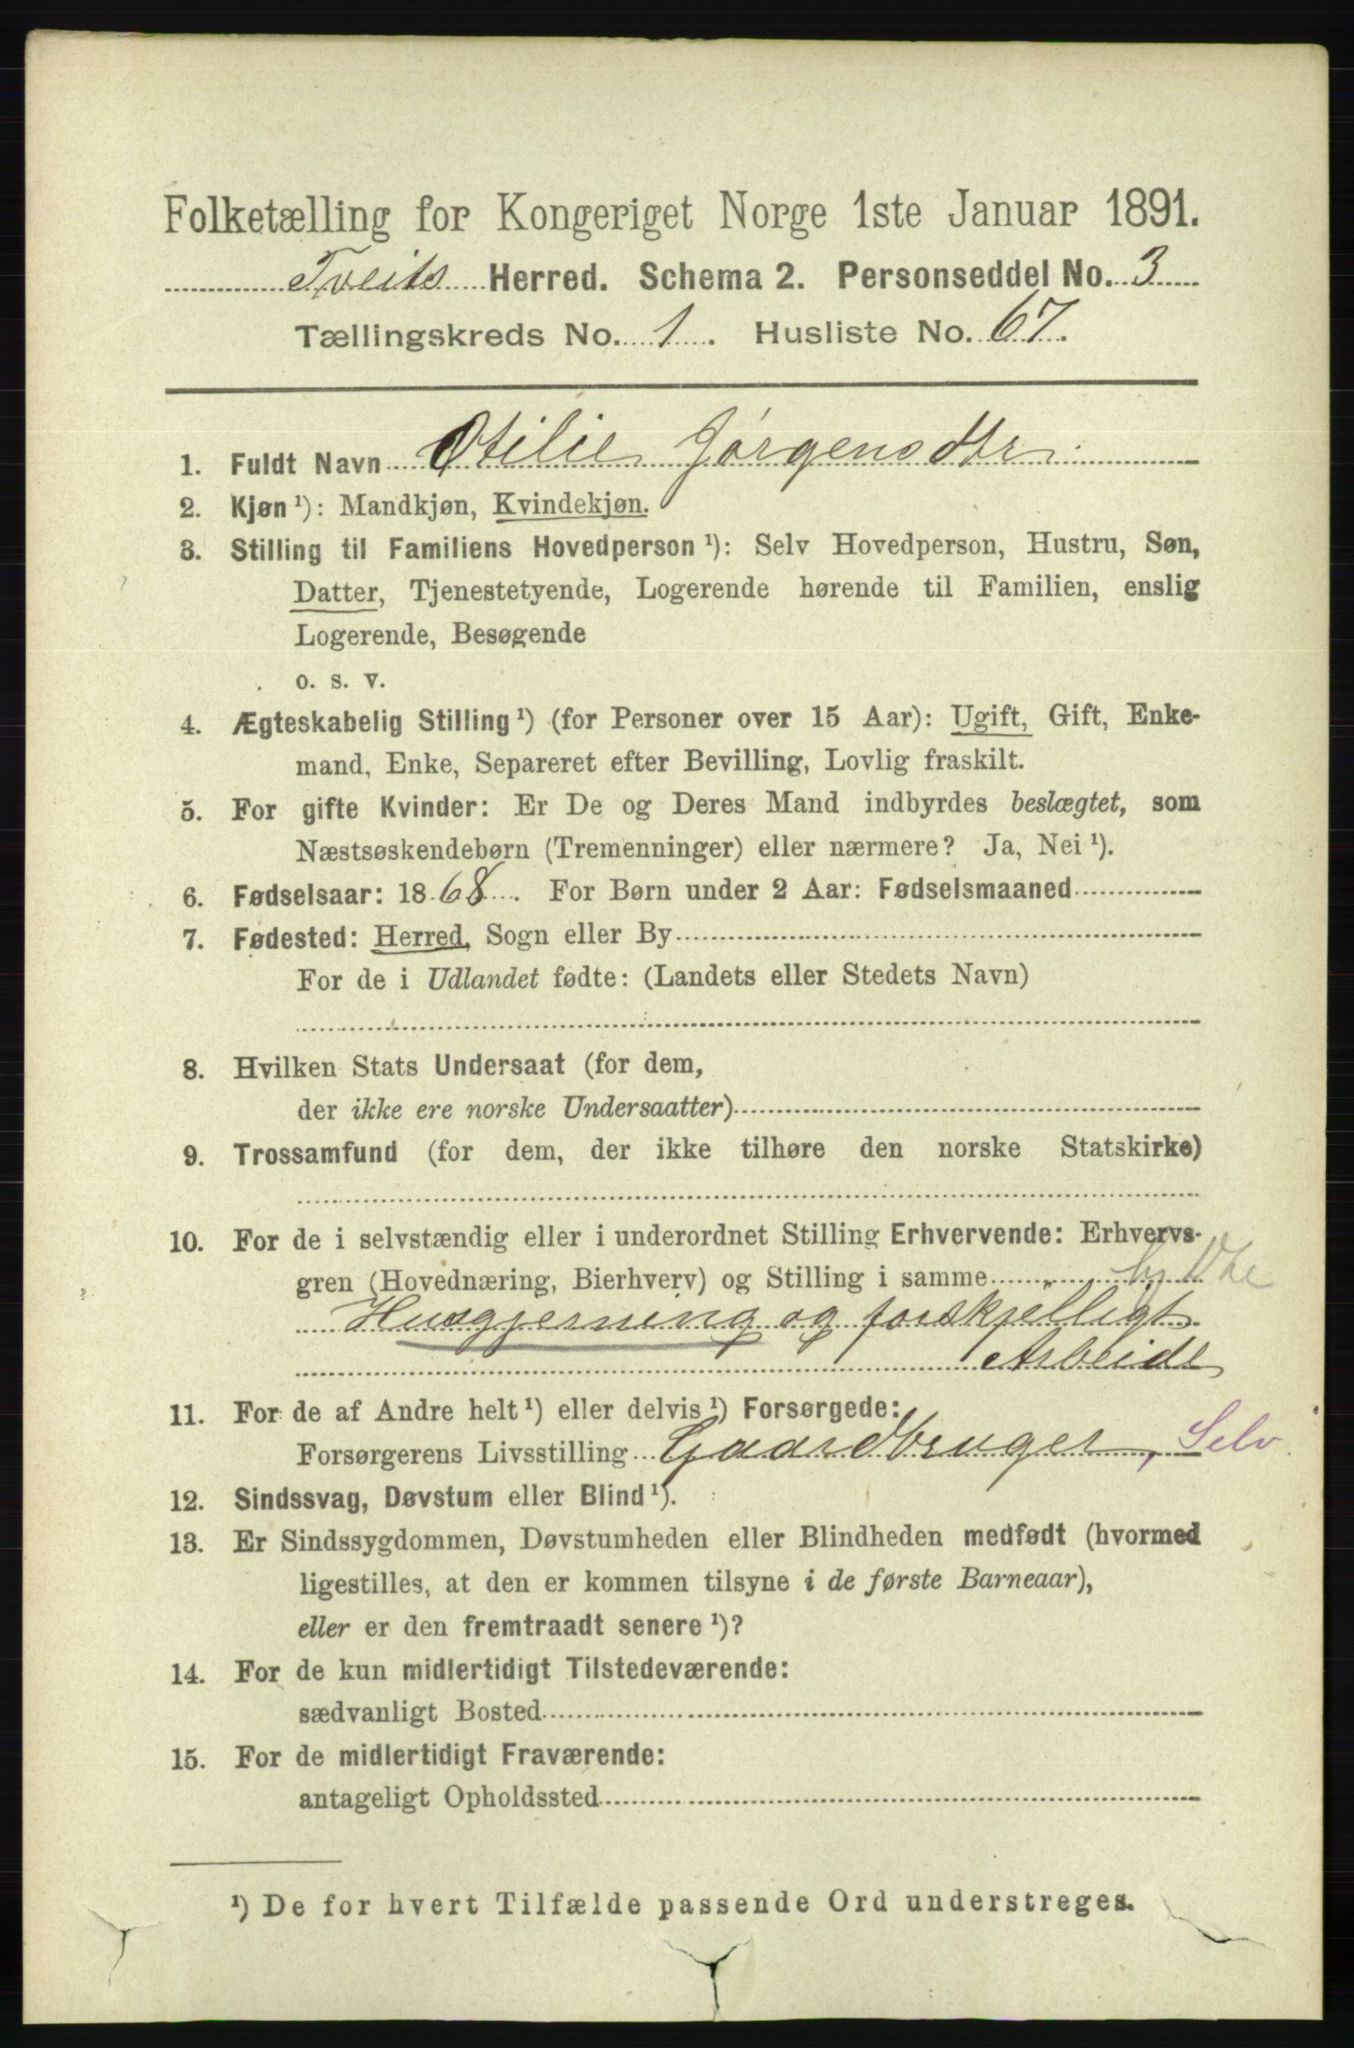 Folketælling for Kongeriget Norge 1ste Januar 1891.
Tveits Herred. Schema 2. Personseddel No. 3
Tællingskreds No. 1. Husliste No. 67.
1. Fuldt Navn Otilie Jørgensdtr
2. Kjøn ¹): Mandkjøn, Kvindekjøn.
3. Stilling til Familiens Hovedperson ¹): Selv Hovedperson, Hustru, Søn,
Datter, Tjenestetyende, Logerende hørende til Familien, enslig
Logerende, Besøgende
o. s. v.
4. Ægteskabelig Stilling ¹) (for Personer over 15 Aar): Ugift, Gift, Enke-
mand, Enke, Separeret efter Bevilling, Lovlig fraskilt.
5. For gifte Kvinder: Er De og Deres Mand indbyrdes beslægtet, som
Næstsøskendebørn (Tremenninger) eller nærmere? Ja, Nei ¹).
6. Fødselsaar: 1868. For Børn under 2 Aar: Fødselsmaaned
7. Fødested: Herred, Sogn eller By
For de i Udlandet fødte: (Landets eller Stedets Navn)
8. Hvilken Stats Undersaat (for dem,
der ikke ere norske Undersaatter)
9. Trossamfund (for dem, der ikke tilhøre den norske Statskirke)
10. For de i selvstændig eller i underordnet Stilling Erhvervende: Erhvervs-
gren (Hovednæring, Bierhverv) og Stilling i samme
Husgjerning og forskjelligt
Arbeide
11. For de af Andre helt ¹) eller delvis ¹) Forsørgede:
Forsørgerens Livsstilling Gaardbruger, Selv
12. Sindssvag, Døvstum eller Blind ¹).
13. Er Sindssygdommen, Døvstumheden eller Blindheden medfødt (hvormed
ligestilles, at den er kommen tilsyne i de første Barneaar),
eller er den fremtraadt senere ¹)?
14. For de kun midlertidigt Tilstedeværende:
sædvanligt Bosted
15. For de midlertidigt Fraværende:
antageligt Opholdssted
¹) De for hvert Tilfælde passende Ord understreges.